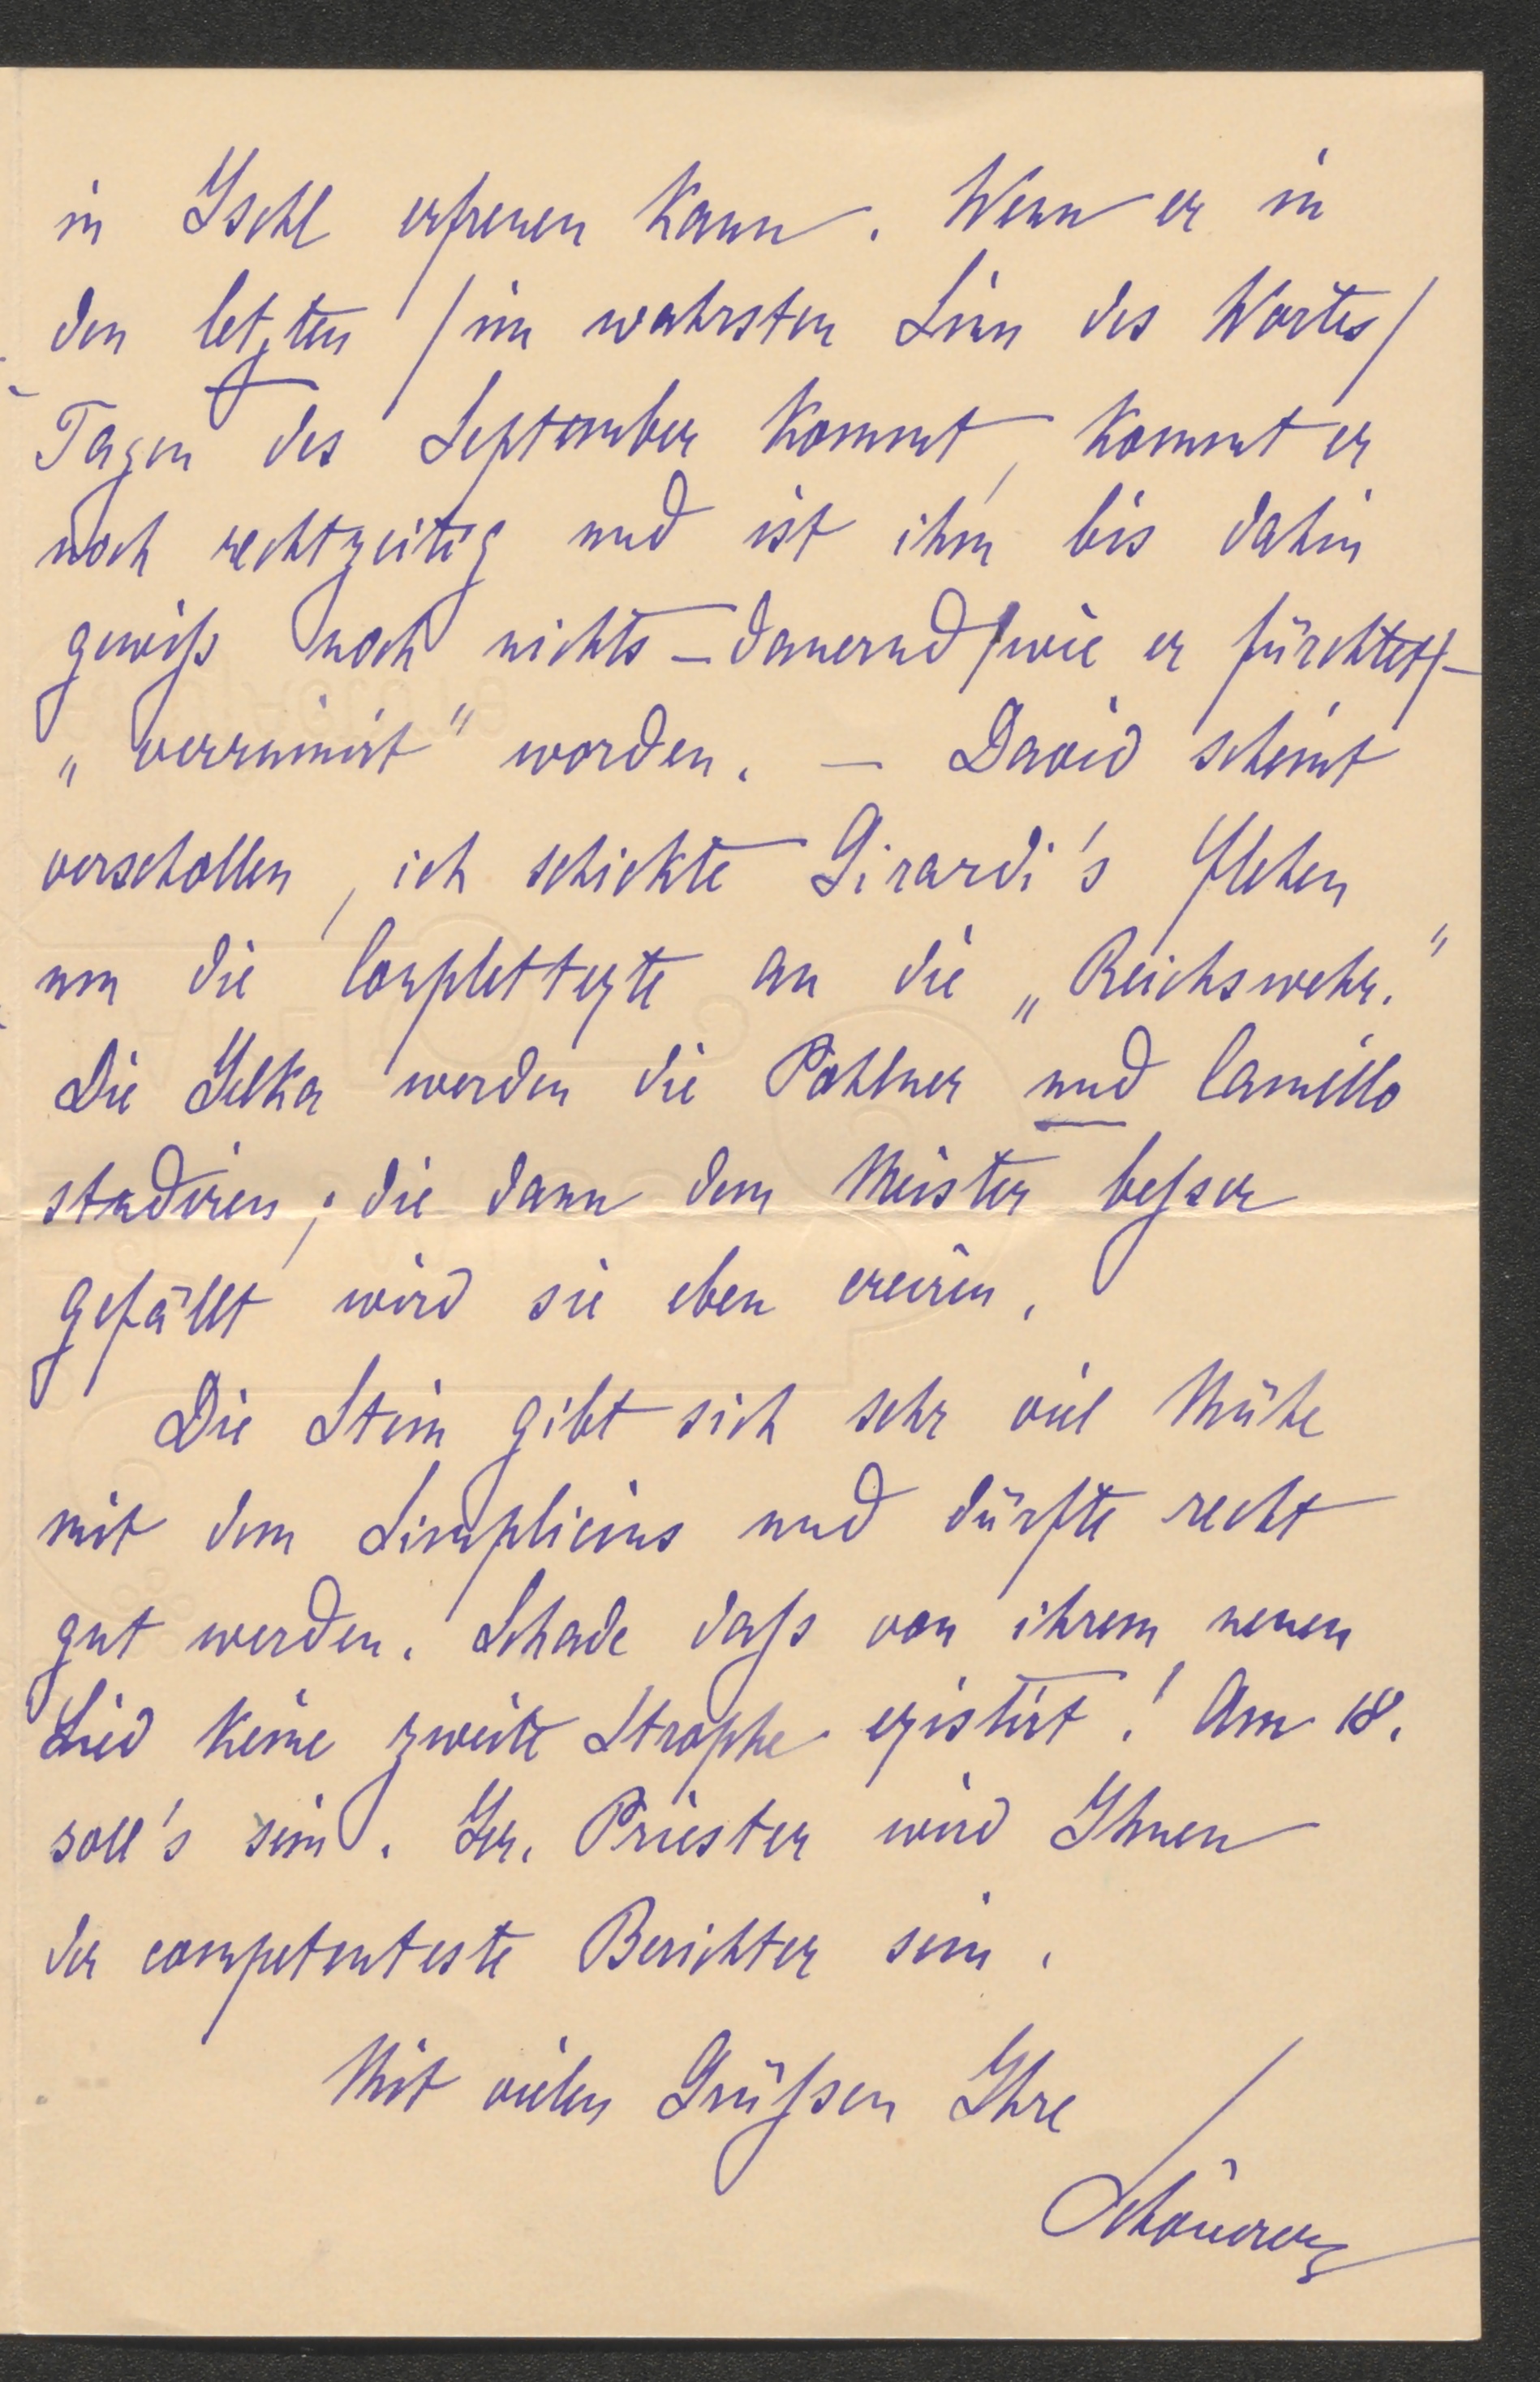 in Ischl erfreuen kann. Wenn er in
den letzten /im wahrsten Sinn des Wortes/
Tagen des September kommt, kommt er
noch rechtzeitig und ist ihm bis dahin
gewiß noch nichts – dauernd /wie er fürchtet/ –
„verruinirt" worden. – David scheint
verschollen, ich schickte Girardi's Flehen
um die Complettexte an die „Reichswehr."
Die Ilka werden die Pohlner und Camillo
studiren; die dann dem Meister besser
gefällt wird sie eben creiren.
Die Stein gibt sich sehr viel Mühe
mit dem Simplicius und dürfte recht
gut werden. Schade daß von ihrem neuen
Lied keine zweite Strophe existirt! Am 18.
soll's sein. Hr. Priester wird Ihnen
der competenteste Berichter sein.
Mit vielen Grüßen Ihre
Schönerer